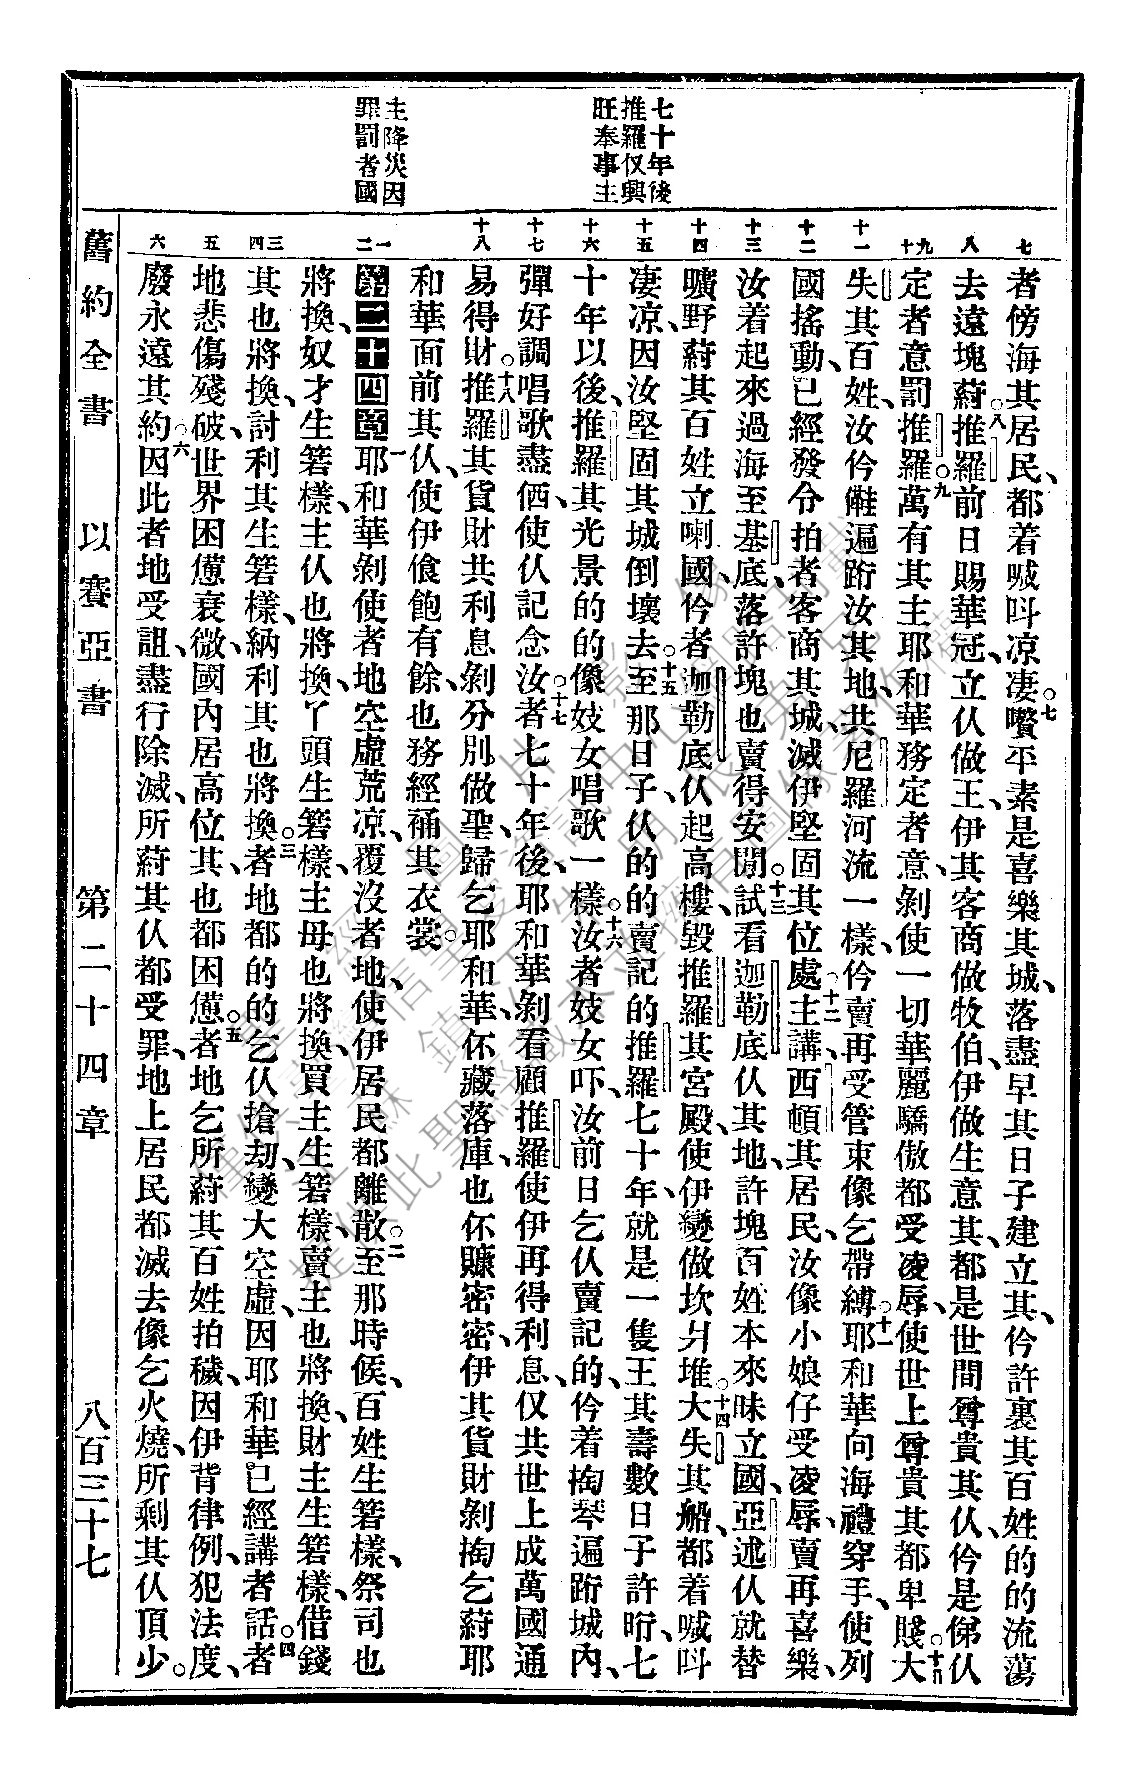 七十年後
推羅仅興
旺奉事主
主降災因
罪罰者國
七
八
九
十
十一
十二
十三
十四
十五
十六
十七
十八
一
二
三
四
五
六
者傍海其居民、都着喊呌凉凄。七贅平素是喜樂其城、落盡早其日子建立其、仱許裏其百姓的的流蕩
去遠塊葤。八推羅前日賜華冠、立仈做王、伊其客商做牧伯、伊做生意其、都是世間尊貴其仈、仱是俤仈
定者意罰推羅。九萬有其主耶和華務定者意、剝使一切華麗驕傲都受凌辱、使世上尊貴其都卑賤。十大
失其百姓、汝仱㒰遍跨汝其地、共尼羅河流一樣、仱賣再受管束像乞帶縛。十一耶和華向海禮穿手、使列
國搖動、已經發令拍者客商其城、滅伊堅固其位處。十二主講、西頓其居民、汝像小娘仔受凌辱、賣再喜樂、
汝着起來過海至基底、落許塊也賣得安閒。十三試看迦勒底仈其地、許塊百姓本來昧立國、亞述仈就替
曠野葤其百姓立喇國、仱者迦勒底仈起高樓、毀推羅其宮殿、使伊變做坎爿堆。十四大失其船、都着喊呌
凄凉、因汝堅固其城倒壞去。十五至那日子、仈的的賣記的推羅七十年、就是一隻王其壽數日子許咑、七
十年以後、推羅其光景的的像妓女唱歌一樣。十六汝者妓女吓、汝前日乞仈賣記的、仱着掏琴遍跨城內、
彈好調唱歌盡価、使仈記念汝。十七者七十年後、耶和華剝看顧推羅、使伊再得利息、仅共世上成萬國通
易得財。十八推羅其貨財共利息、剝分別做聖、歸乞耶和華、伓藏落庫、也伓賺密密、伊其貨財剝掏乞葤耶
和華面前其仈、使伊飡飽有餘、也務經補其衣裳。
第二十四章一耶和華剝使者地空虛荒凉、覆沒者地、使伊居民都離散。二至那時候、百姓生箬樣、祭司也
將換、奴才生箬樣、主仈也將換、丫頭生箬樣、主母也將換、買主生箬樣、賣主也將換、財主生箬樣、借錢
其也將換、討利其生箬樣、納利其也將換。三者地都的的乞仈搶刼、變大空虛、因耶和華已經講者話。四者
地悲傷殘破、世界困憊衰微、國內居高位其、也都困憊。五者地乞所葤其百姓拍穢、因伊背律例、犯法度、
廢永遠其約。六因此者地受詛、盡行除滅、所葤其仈都受罪、地上居民都滅去像乞火燒、所剩其仈頂少。
舊約全書　以賽亞書　第二十四章　八百三十七